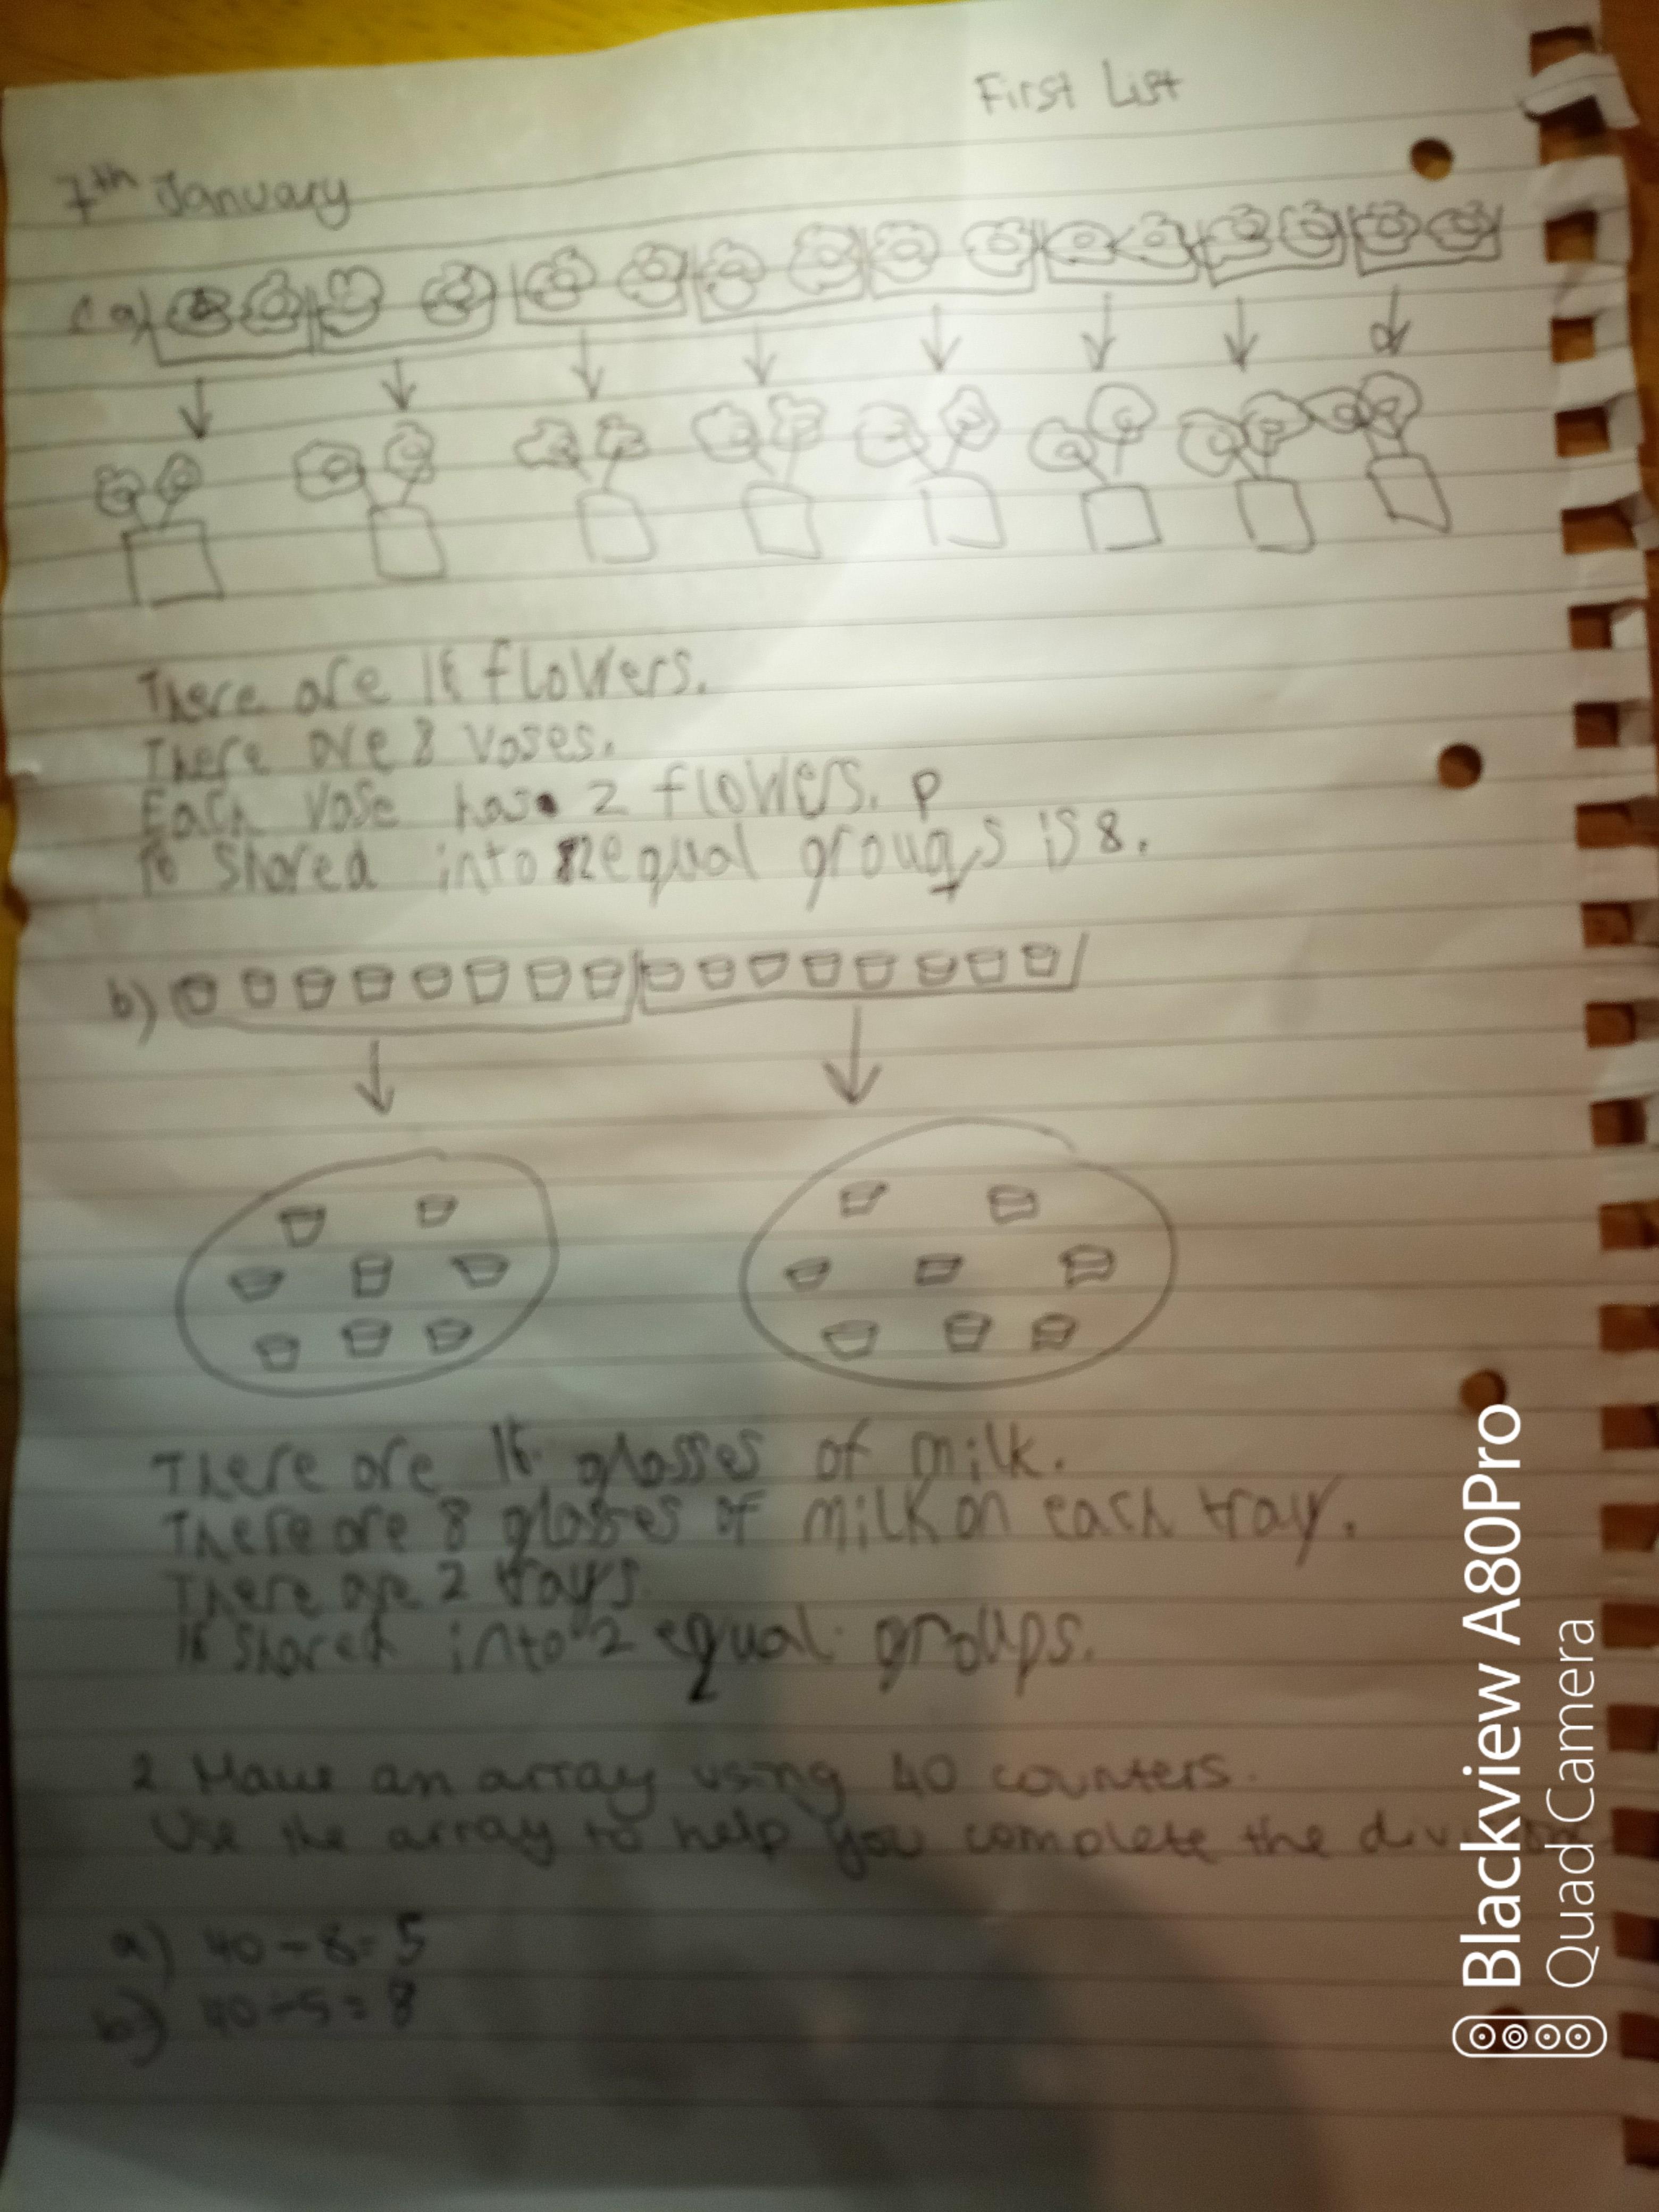 First List
7th January
1 a)
There are 16 flowers.
There are 8 vases.
Each vase has 2 flowers. p
16 shared into 2 equal groups is 8.
b)
There are 16 glasses of milk.
There are 8 glasses of milk on each tray.
There are 2 trays
16 shared into 2 equal groups.
2 Have an array using 40 counters.
Use the array to help you complete the
a) 40 ÷ 8 = 5
b) 40 ÷ 5 = 8
Blackview A80Pro
Quad Camera